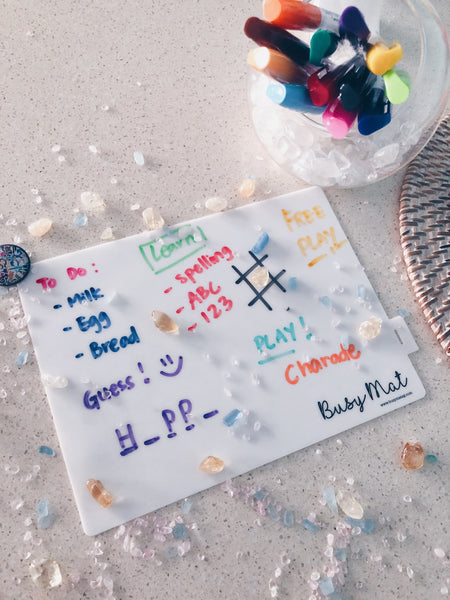 To Do:
- Milk
- Egg
- Bread
Learn
- spelling
- ABC
- 123
FREE
PLAY!
Guess!
H_PP_
PLAY!
Charade
Busy Mat